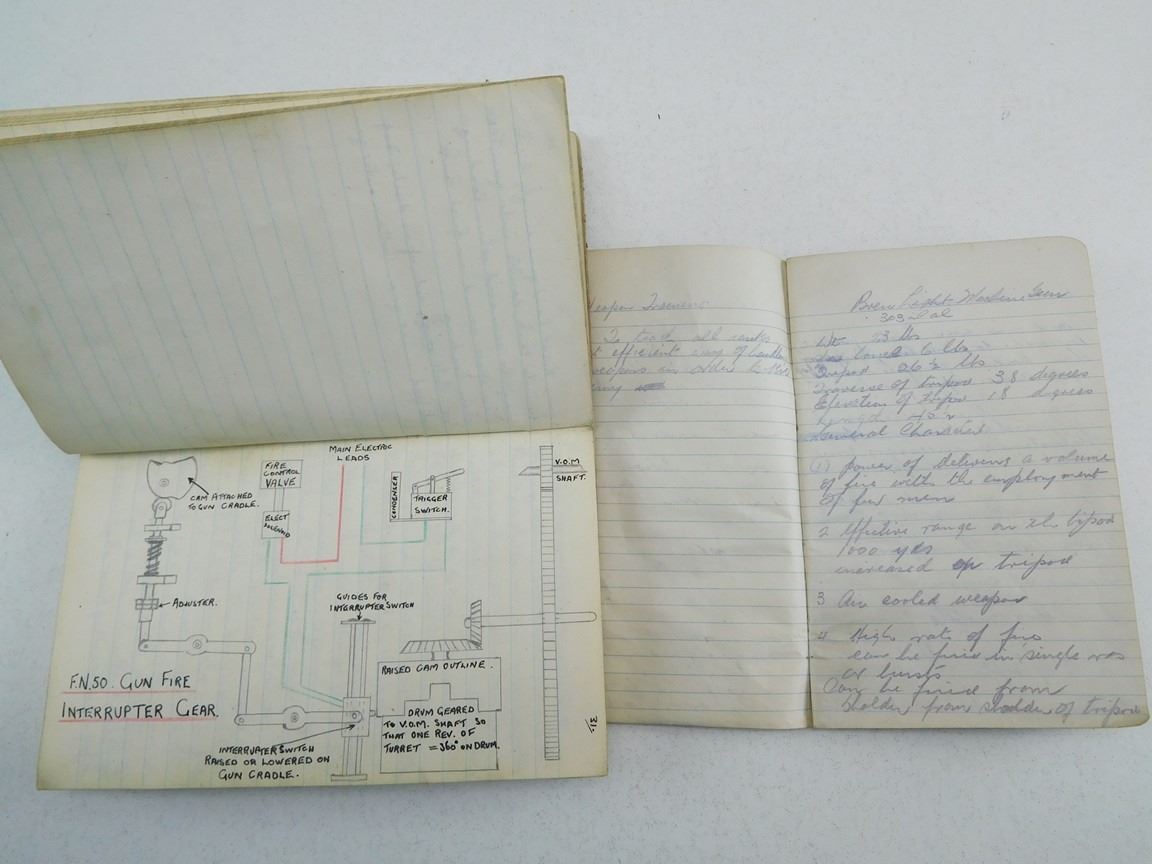 MAIN ELECTRIC
LEADS
FIRE
CONTROL
VALVE
V.O.M
SHAFT.
CAM ATTACHED
TO GUN CRADLE.
CONDENSER
TRIGGER
SWITCH.
ELECT
SOLENOID
GUIDES FOR
INTERRUPTER SWITCH
ADJUSTER.
RAISED CAM OUTLINE.
F.N.50. GUN FIRE
INTERRUPTER GEAR.
DRUM GEARED
TO V.O.M. SHAFT SO
THAT ONE REV. OF
TURRET = 360° ON DRUM.
INTERRUPTER SWITCH
RAISED OR LOWERED ON
GUN CRADLE.
31
To teach all ranks
efficient way of
weapons in order to
Bren Light Machine Gun
.303 Cal
lbs
6 lbs
Tripod 26½ lbs
Traverse of tripod 38 degrees
Elevation of tripod 18 degrees
Length
General
(1) power of delivering a volume
of fire with the employment
of few men
2 Effective range on the bipod
1000 yds
increased on tripod
3 Air cooled weapon
4 High rate of fire
can be fired in single
or bursts
Can be fired from
from of tripod